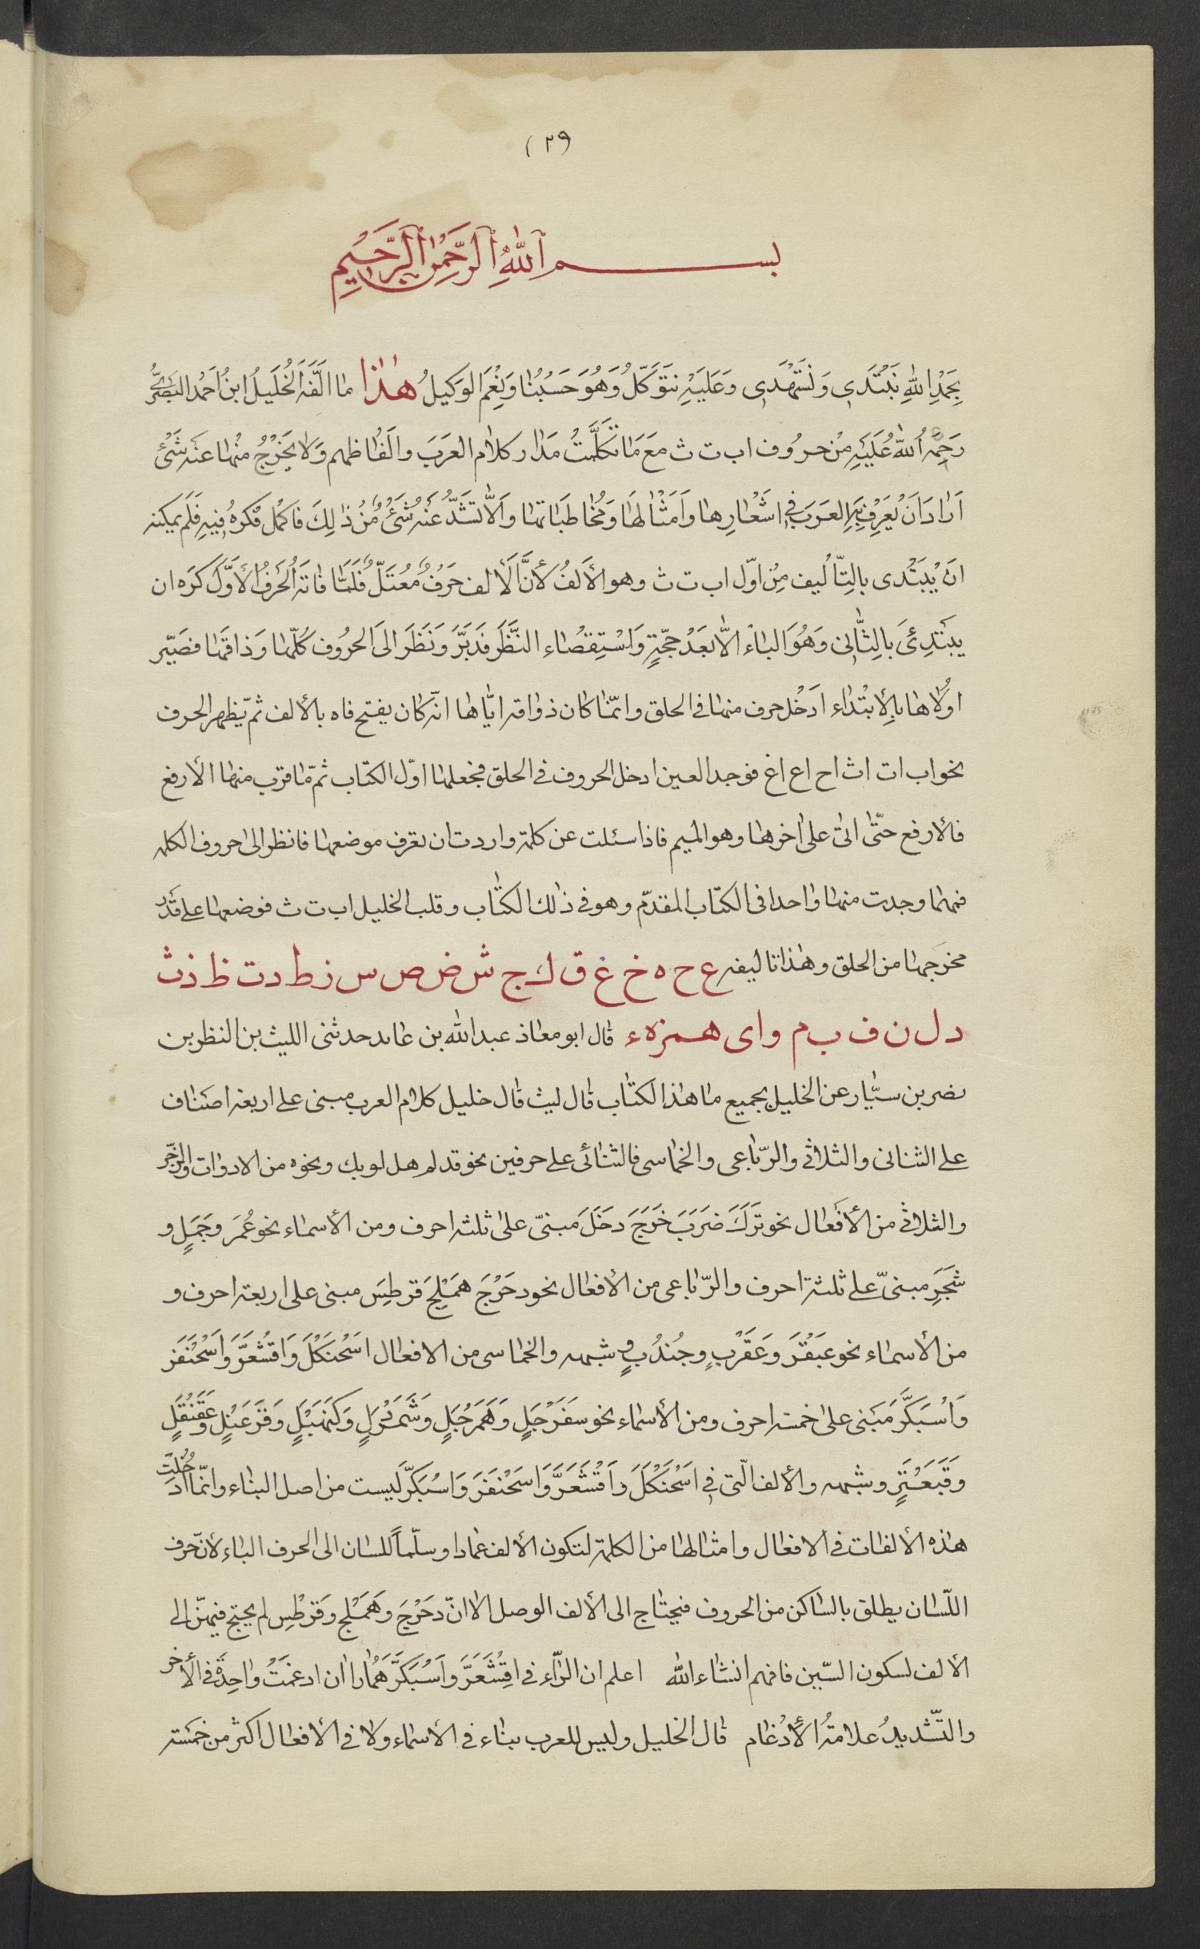 (٢٩
بســـم ٱللّٰهِ ٱلرَّحْمٰنِ ٱلرَّحِيْمِ
بِحَمْدِ اللّٰهِ نَبْتَدِي وَنَسْتَهْدِي وَعَلَيْهِ نَتَوَكَّلُ وَهُوَ حَسْبُنَا وَنِعْمَ الوَكِيلُ هٰذا ما الَّفَهُ الْخَلِيلُ ابنُ اَحْمَد البَصْرِيُّ
رَحِمَهُ اللّٰهُ عَلَيْهِ مِنْ حروُف ا ب ت ث مَعَ مَا تَكَلَّمَتْ مَدَار كلام العرَبَ والَفْاظهم وَلا يَخْرُجُ مِنْهٰا عَنْه شَئْ
اَرادَ اَنْ يَعْرِفَ بِهِ العرَبَ فِي اشَعْارِهٰا وَاَمَثْالهَا وَمُخٰاطَبَاتها وَالّٰا تَشذُّ عَنْهُ شَئْ مِنْ ذٰلِكَ فَاكَمْل فكرهُ فِيهِ فَلَم يمكنه
انَ يْبَتْدى بالتِاّلْيف مِنْ اوّل ا ب ت ث وهو الاَلفُ لأنَّ الَالف حَرَفْ مُعْتَلّ فَلَمّا فٰاتهُ الْحَرفُ الأوّل كَرَه ان
يبَتْدِئَ بالِثّانى وَهُوَ البٰاءْ الّٰا بَعَدْ حجّةٍ وَاسْتِقصٰاء النَّظَر فَدَبَّرَ وَنَظَرَ الَى الحروُف كُلّهٰا وَذاقَهٰا فصَيّر
اوَلْاهٰا بالِابْتداء ادَخْل حرف منهٰا فى الحلق وانّما كان ذواقه ايّاها انّه كان يفتح فاه بالألف ثمّ يظهر الحرف
نحو اب ات اث اح اع اغ فوجد العين ادخل الحروف فى الحلق فجعلها اوّل الكتاب ثمّ ما قرب منها الارفع
فالارفع حتّى اتى على اخرهٰا وهو الميم فاذا سئلت عن كلمة واردت ان تعرف موضعها فانظر الى حروف الكلمه
فمهما وجدت منها واحدا فى الكتاب المقدّم وهو فى ذٰلك الكتٰاب وقلب الخليل ا ب ت ث فوضعها على قَدْر
مخرَجها من الحلق وهٰذا تاليفه ع ح ه خ غ ق ك ج ش ض ص س ز ط د ت ظ ذ ث
د ل ن ف ب م و ا ى همزه ء قال ابو معاذ عبد اللّٰه بن عايد حدثنى الليث بن النظر بن
نصر بن سيّار عن الخليل بجميع ما هٰذا الكتاب قال ليث قال خليل كلام العرب مبنى على اربعه اصناف
على الثنائى والثلاثى والرّباعى والخماسى فالثنائى على حرفين نحو قد لم هل لو بك ونحوه من الادوات والزجر
والثلاثى من الأفعال نحو تَرَكَ ضَرَبَ خَرَجَ دَخَلَ مبنىّ على ثلثه احرف ومن الأسماء نحو عُمَرَ وجَمَلٍ و
شَجَرِ مبنىّ على ثلثة احرف والرّباعى من الأفعال نحو دحَرْجَ هَمْلَجَ قرطسَ مبنى على اربعة احرف و
من الأسماء نحو عبَقْرَ وعَقَرْبٍ وجُندُبٍ وشبهه والخماسى من الافعال اسَحْنَكَكْ وَاقشْعَرَّ وَاسَحْنَفَر
وَاسْبَكَّر مَبنى على خمسه احرف ومن الأسماء نحو سفَرْجَلٍ وَهَمَرْجَلٍ وشَمَرْدَلٍ وَكنَهْبَلٍ وَقَزَعْبلٍ وعَقَنْقَلٍ
وَقَبَعْثَرٍ وشبهه والألف الّتى فى اسَحْنَكَكَ وَاقْشَعَرَّ وَاسَحْنَفَرَ وَاسْبَكَرّ ليست من اصل البناء وانّما ادَخُلت
هٰذه الألفات فى الافعال وامثالها من الكلمة لتكون الألف عمادا وسلّماً للسان الى الحرف الباء لانّ حرف
اللّسان يطلق بالساكن من الحروف فيحتاج الى الألف الوصل الا انّ دحَرْجَ وهَمْلج وقرَطْس لم يحتج فيهنّ الى
الألف لسكون السّين فافهم انشاء اللّٰه اعلم ان الرّاء فى اقِشْعَرَّ واَسْبَكرَّ هُمٰا راٰان ادغمَتْ واٰحِدة فى الأخر
والتّشديدُ علامَةُ الأِدغٰام قال الخليل وليس للعرب بناء فى الأسماء ولا فى الأفعال اكثر من خمَسْه